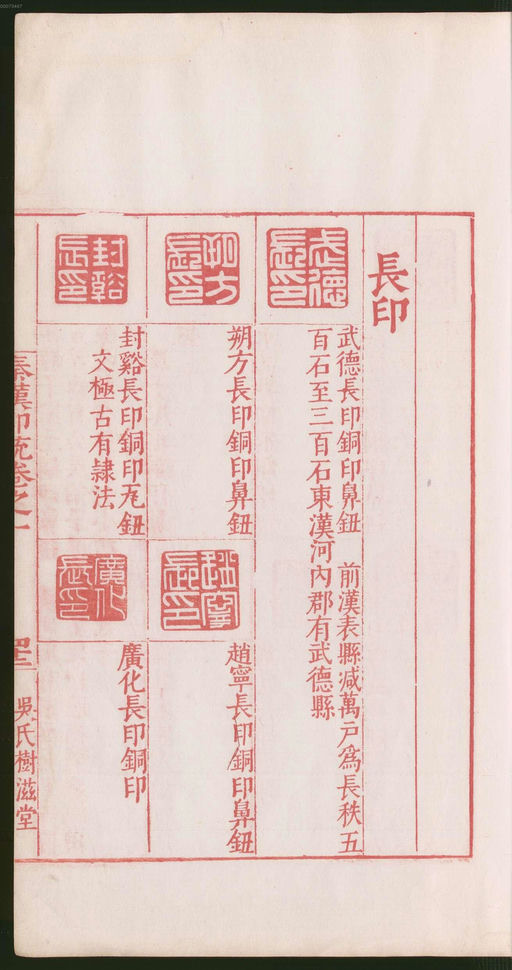 長印
武德長印
武德長印銅印鼻鈕　前漢表縣減萬戶爲長秩五
百石至三百石東漢河內郡有武德縣
朔方長印
朔方長印銅印鼻鈕
趙寧長印
趙寧長印銅印鼻鈕
封谿長印
封谿長印銅印瓦鈕
文極古有隷法
廣化長印
廣化長印銅印
秦漢印統卷之一
吳氏樹滋堂
00073447